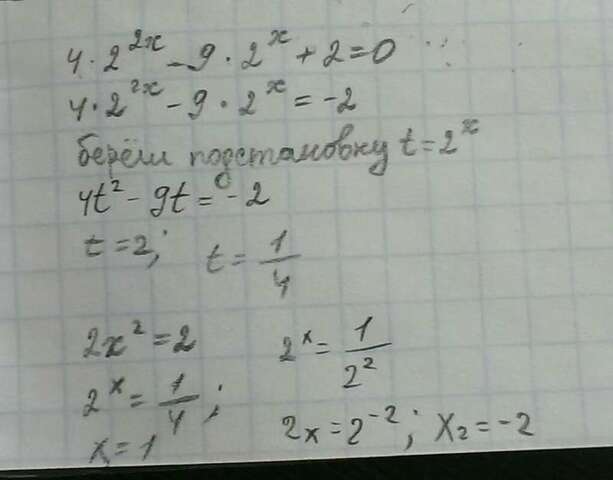 4·2^{2x} - 9·2^x + 2 = 0
4·2^{2x} - 9·2^x = -2
берём подстановку t = 2^x
4t² - 9t = -2
t = 2; t = 1/4
2x² = 2 2^x = 1/2²
2^x = 1/4; 2x = 2^{-2}; x₂ = -2
x₁ = 1